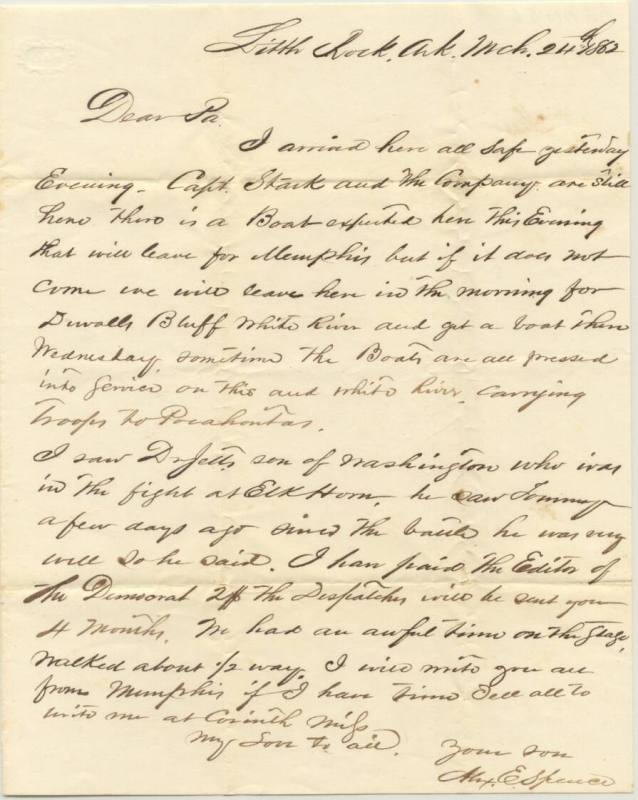 Little Rock, Ark. Mch. 24th 1862
Dear Pa.
I arrived here all safe yesterday
Evening. Capt. Stark and the Company are still
here there is a Boat expected here this Evening
that will leave for Memphis but if it does not
come we will leave here in the morning for
Duvalls Bluff White River and get a boat there
Wednesday sometime the Boats are all pressed
into service on this and White River, carrying
troops to Pocahontas.
I saw Dr Jetts son of Washington who was
in the fight at Elk Horn, he saw Tommy
a few days ago since the battle he was very
well so he said. I have paid the Editor of
the Democrat 2$ the Despatches will be sent you
4 Months. We had an awful time on the Stage,
walked about 1/2 way. I will write you all
from Memphis if I have time Tell all to
write me at Corinth Miss
My Love to all. Your son
Alex. E. Spence